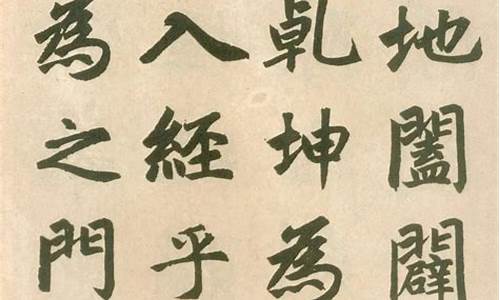 地闔闢
乹坤為
入經乎
為之門